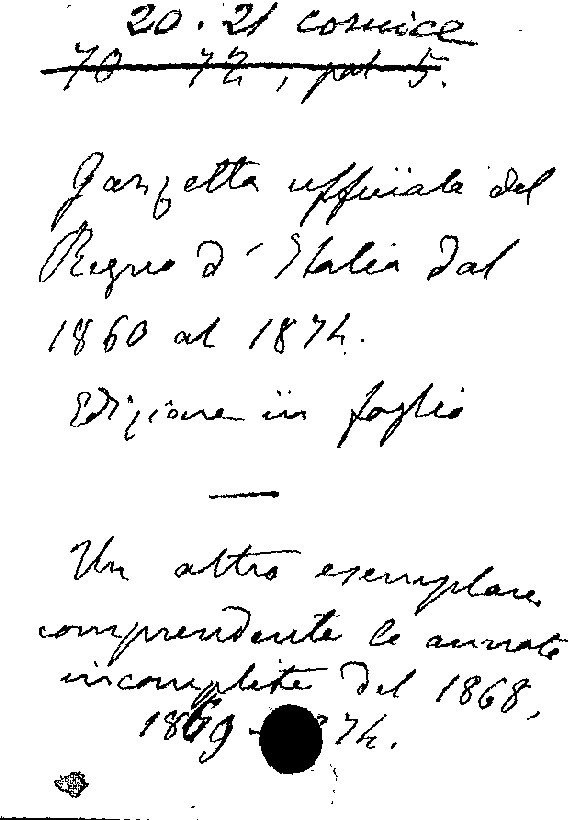 20. 21 cornice
70 72, pal 5.
Gazzetta ufficiale del
Regno d' Italia dal
1860 al 1874.
Edizione in foglio
Un altro esemplare
comprendente le annate
incomplete del 1868,
1869 - 74.